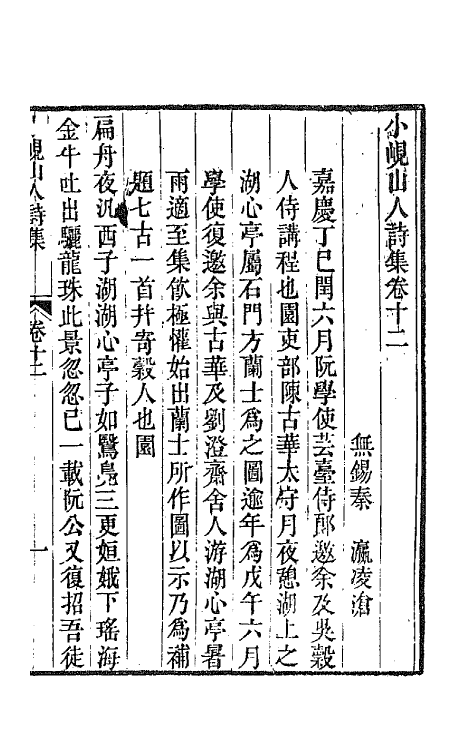 小峴山人詩集卷十二
無錫秦　瀛凌滄
嘉慶丁巳閏六月阮學使芸臺侍郎邀余及吳穀
人侍講程也園吏部陳古華太守月夜憩湖上之
湖心亭屬石門方蘭士爲之圖逾年爲戊午六月
學使復邀余與古華及劉澄齋舍人游湖心亭暑
雨適至集飲極懽始出蘭士所作圖以示乃爲補
題七古一首幷寄穀人也園
扁舟夜汎西子湖湖心亭子如鷖鳧三更姮娥下瑤海
金牛吐出驪龍珠此景忽忽已一載阮公又復招吾徒
峴山人詩集　卷十二　一